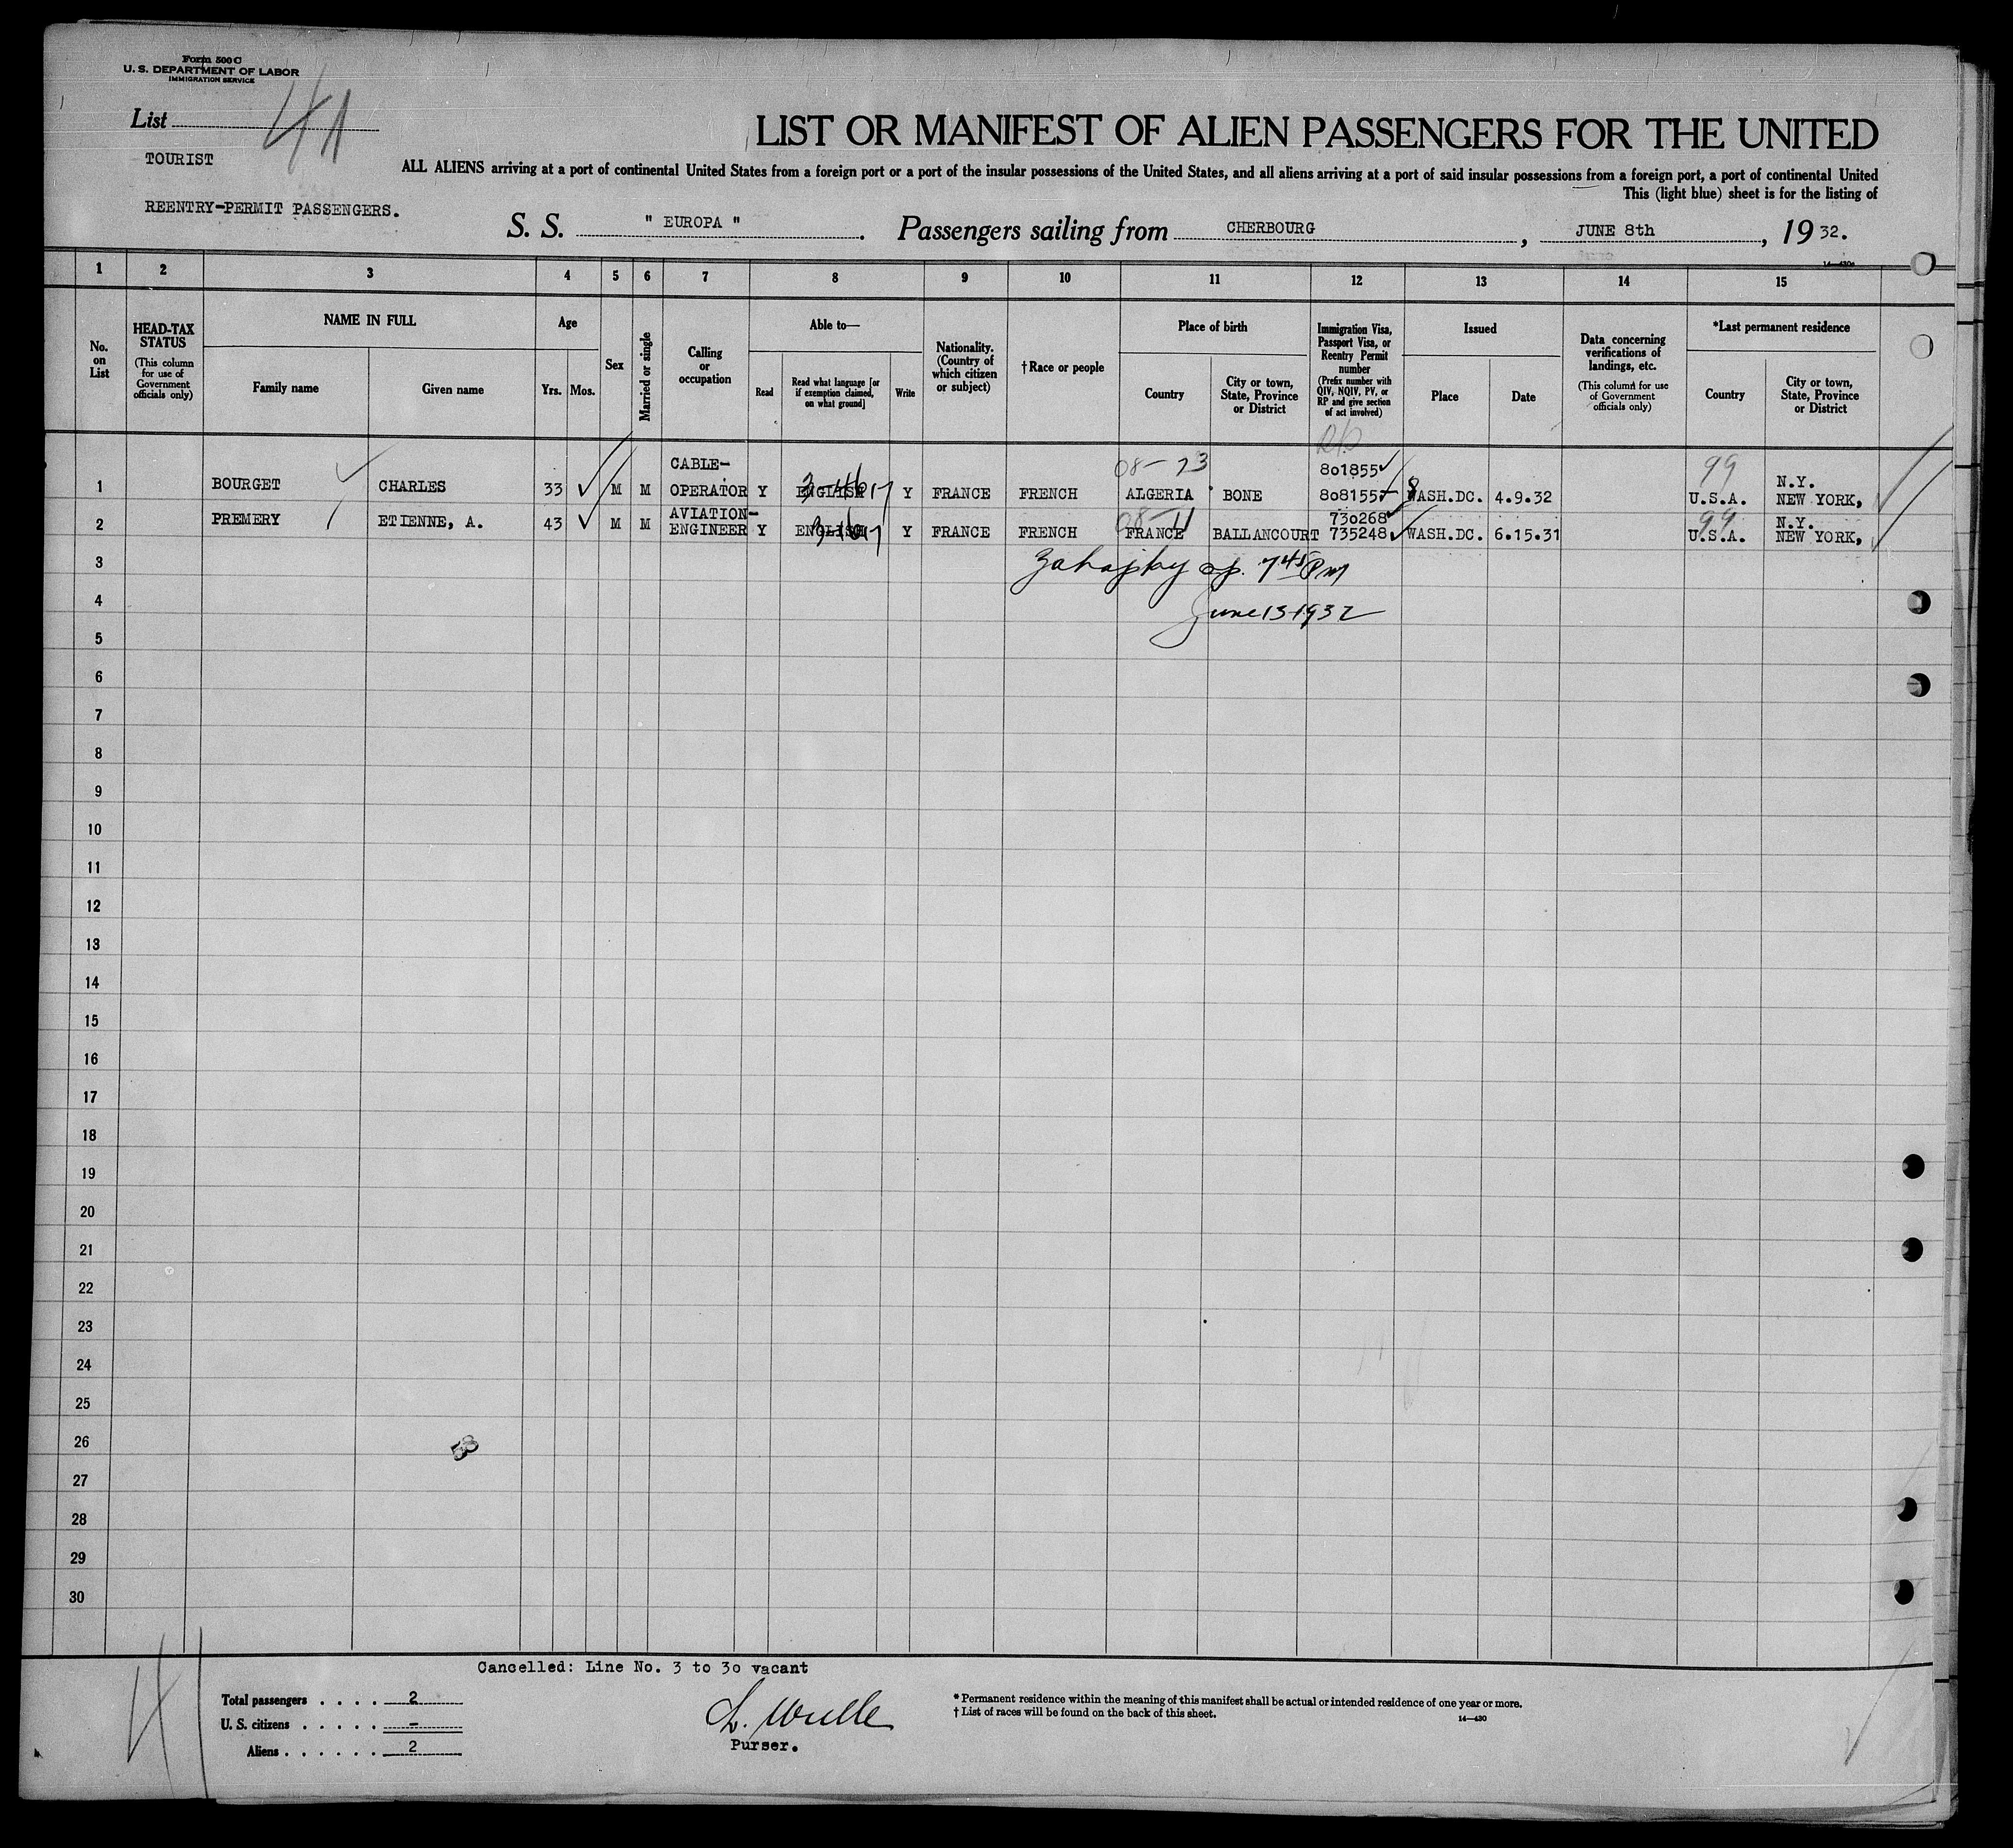 Form 500 C
U. S. DEPARTMENT OF LABOR
IMMIGRATION SERVICE
List 41
TOURIST
REENTRY-PERMIT PASSENGERS.
LIST OR MANIFEST OF ALIEN PASSENGERS FOR THE UNITED
ALL ALIENS arriving at a port of continental United States from a foreign port or a port of the insular possessions of the United States, and all aliens arriving at a port of said insular possessions from a foreign port, a port of continental United
This (light blue) sheet is for the listing of
S. S. " EUROPA ". Passengers sailing from CHERBOURG, JUNE 8th, 19 32.
1 2 3 4 5 6 7 8 9 10 11 12 13 14 15
No. on List
HEAD-TAX STATUS
(This column for use of Government officials only)
NAME IN FULL
Family name
Given name
Age
Yrs. Mos.
Sex
Married or single
Calling or occupation
Able to—
Read
Read what language [or if exemption claimed, on what ground]
Write
Nationality. (Country of which citizen or subject)
† Race or people
Place of birth
Country
City or town, State, Province or District
Immigration Visa, Passport Visa, or Reentry Permit number
(Prefix number with QIV, NQIV, PV, or RP and give section of act involved)
Issued
Place
Date
Data concerning verifications of landings, etc.
(This column for use of Government officials only)
*Last permanent residence
Country
City or town, State, Province or District
1 BOURGET CHARLES 33 M M CABLE-OPERATOR Y ENGLISH Y FRANCE FRENCH 08-23 ALGERIA BONE 801855 808155 WASH.DC. 4.9.32 99 U.S.A. N.Y. NEW YORK,
2 PREMERY ETIENNE, A. 43 M M AVIATION-ENGINEER Y ENGLISH Y FRANCE FRENCH 08-11 FRANCE BALLANCOURT 730268 735248 WASH.DC. 6.15.31 99 U.S.A. N.Y. NEW YORK,
3 7 45 PM
4 June 13-1932
5
6
7
8
9
10
11
12
13
14
15
16
17
18
19
20
21
22
23
24
25
26
27
28
29
30
Cancelled: Line No. 3 to 30 vacant
41
Total passengers . . . . 2
U. S. citizens . . . . . —
Aliens . . . . . . 2
Purser.
* Permanent residence within the meaning of this manifest shall be actual or intended residence of one year or more.
† List of races will be found on the back of this sheet.
14—430